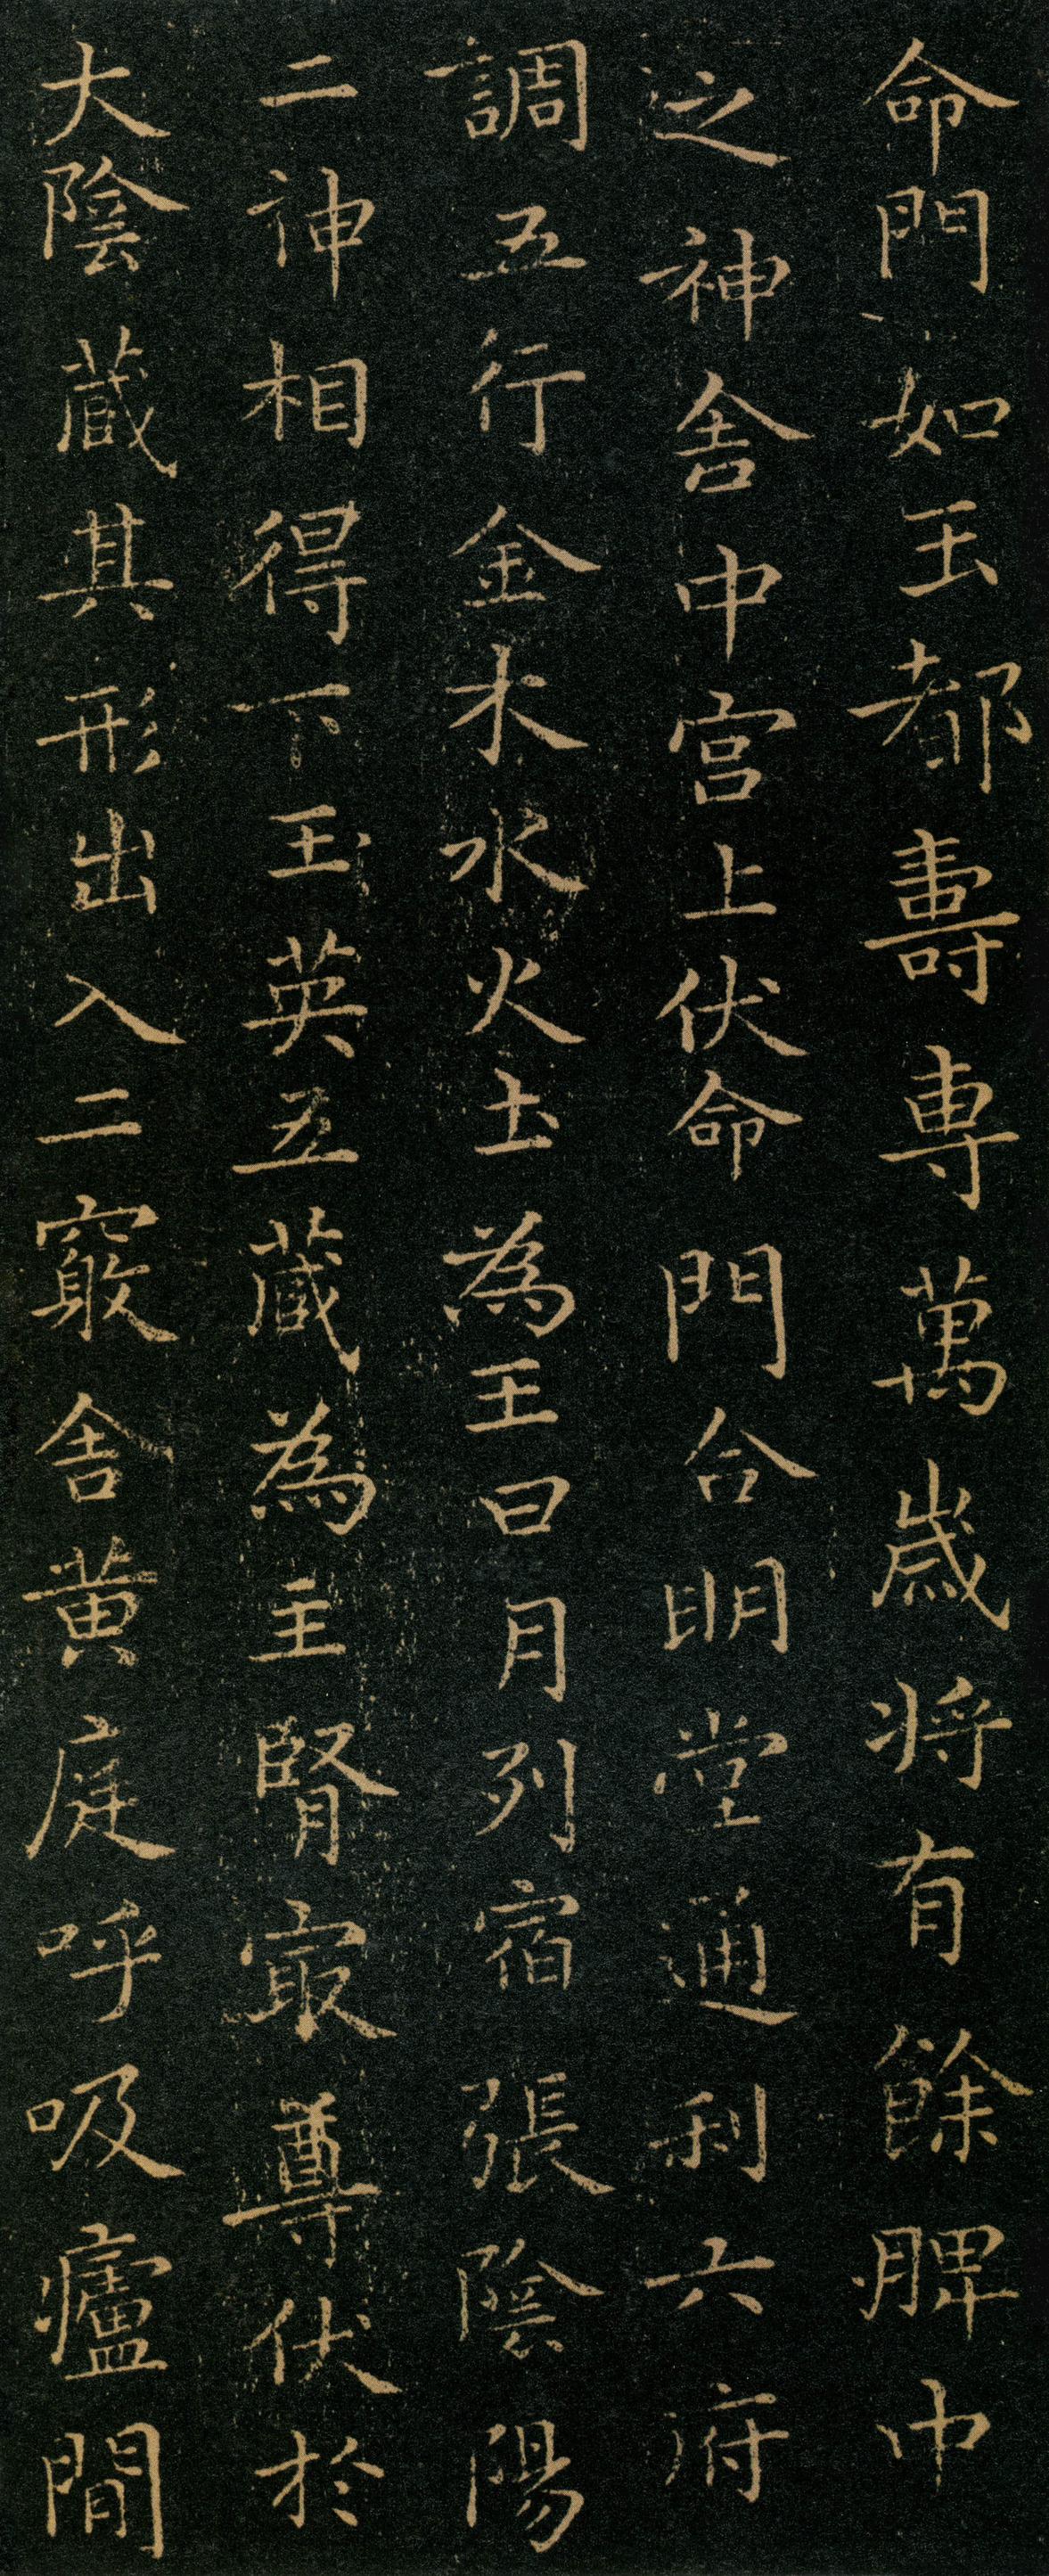 命門如玉都壽專萬歲将有餘脾中
之神舍中宮上伏命門合明堂通利六府
調五行金木水火土為王日月列宿張陰陽
二神相得下玉英五藏為主腎㝡尊伏於
大陰藏其形出入二竅舍黄庭呼吸廬間